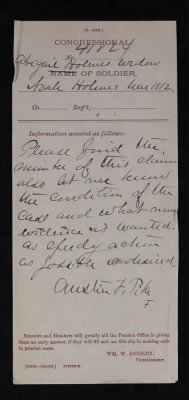 (3—080.)
CONGRESSIONAL
No. 41827
Abigail Holmes widow
NAME OF SOLDIER,
Holmes War 1812
Co. Reg't,
Information wanted as follows:
Please find the
number of this claim
also let me know
the condition of the
case and what more
evidence is wanted.
as speedy action
as possible desired.
Austin F. Pike
Senators and Members will greatly aid the Pension Office in giving
them an early answer, if they will fill and use this slip in making calls
in pension cases.
WM. W. DUDLEY,
Commissioner.